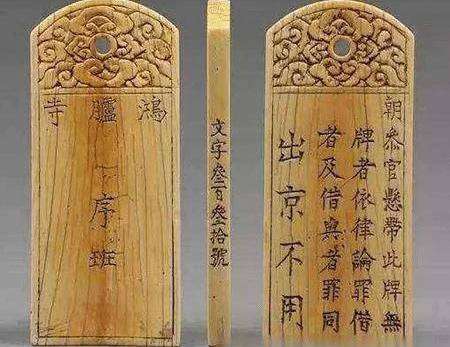 鴻臚寺
序班
文字叁百叁拾號
朝叅官懸帶此牌無
牌者依律論罪借
者及借與者罪同
出京不用